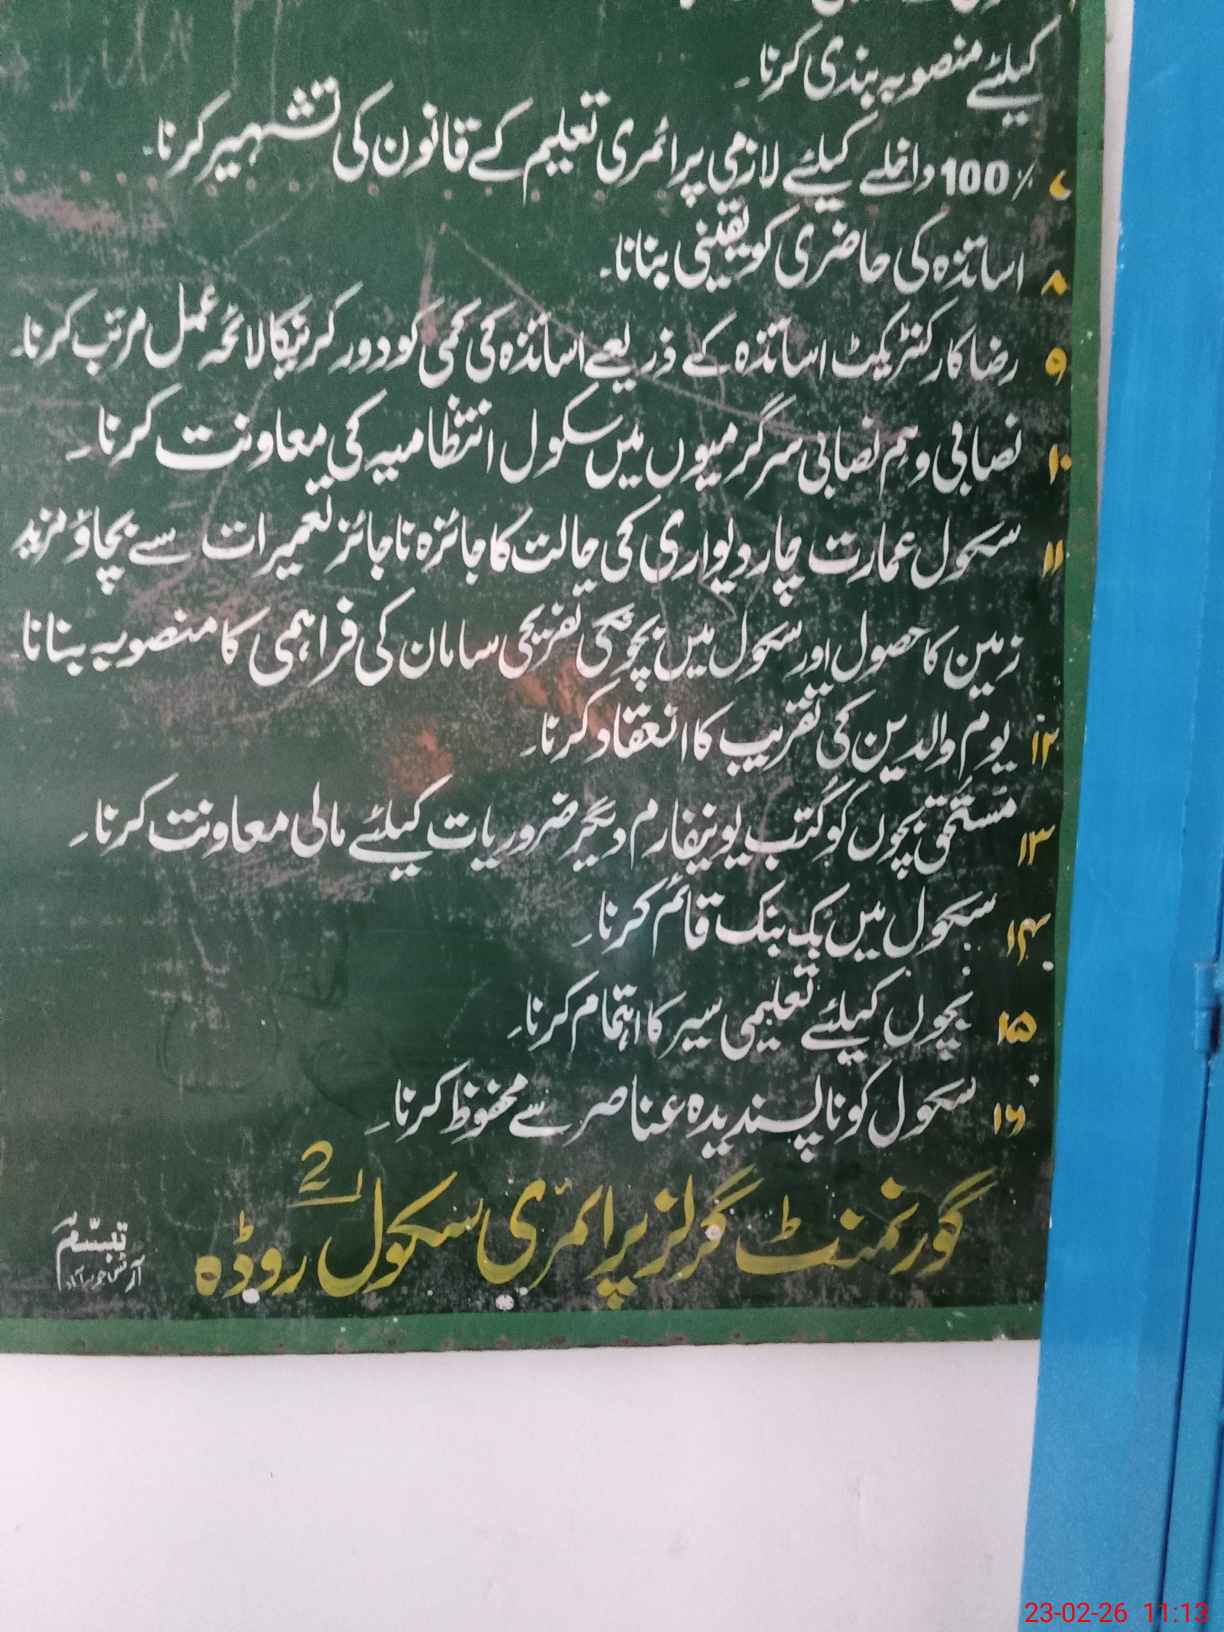 کیلئے منصوبہ بندی کرنا۔
۷ ٪100 داخلے کیلئے لازمی پرائمری تعلیم کے قانون کی تشہیر کرنا۔
۸ اساتذہ کی حاضری کو یقینی بنانا۔
۹ رضاکار کنٹریکٹ اساتذہ کے ذریعے اساتذہ کی کمی کو دور کرنیکا لائحہ عمل مرتب کرنا۔
۱۰ نصابی و ہم نصابی سرگرمیوں میں سکول انتظامیہ کی معاونت کرنا۔
۱۱ سکول عمارت چار دیواری کی حالت کا جائزہ ناجائز تعمیرات سے بچاؤ مزید
زمین کا حصول اور سکول میں بچوں کی تفریحی سامان کی فراہمی کا منصوبہ بنانا
۱۲ یوم والدین کی تقریب کا انعقاد کرنا۔
۱۳ مستحق بچوں کو کتب یونیفارم دیگر ضروریات کیلئے مالی معاونت کرنا۔
۱۴ سکول میں بک بنک قائم کرنا۔
۱۵ بچوں کیلئے تعلیمی سیر کا اہتمام کرنا۔
۱۶ سکول کو ناپسندیدہ عناصر سے محفوظ کرنا۔
گورنمنٹ گرلز پرائمری سکول 2 روڈہ
تبسم
آرٹس جوہرآباد
23-02-26 11:13